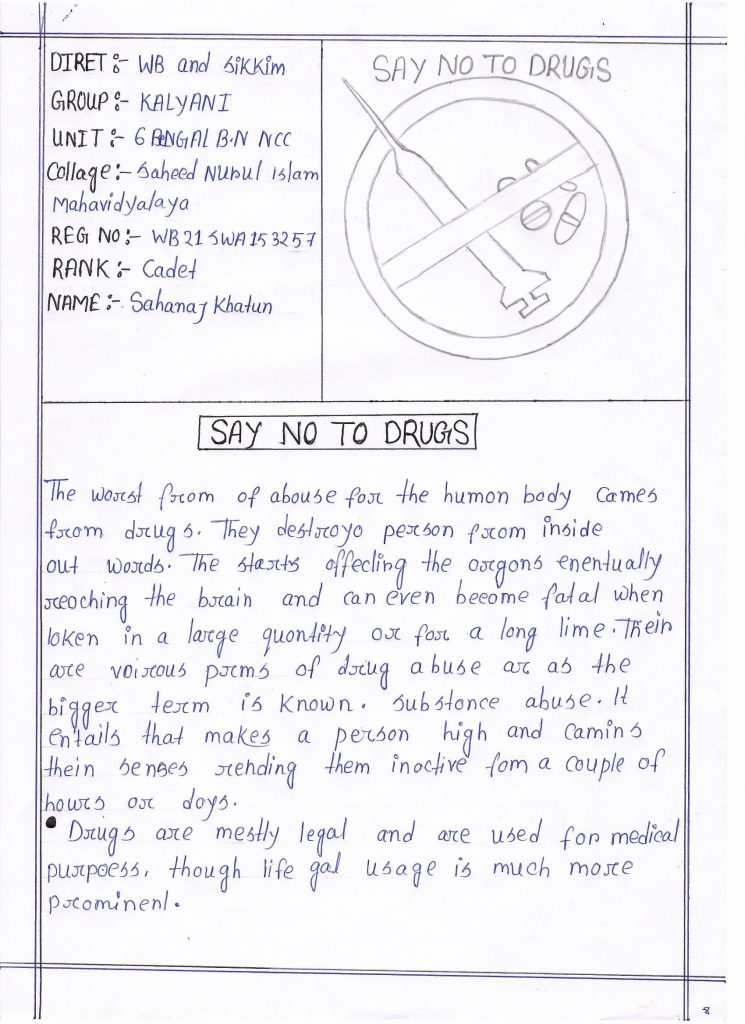 DIRET :- WB and Sikkim
GROUP :- KALYANI
UNIT :- 6 BENGAL B.N NCC
Collage :- Saheed Nurul islam
Mahavidyalaya
REG NO :- WB 21 SWA 153257
RANK :- Cadet
NAME :- Sahanaj Khatun
SAY NO TO DRUGS
SAY NO TO DRUGS
The worst from of abuse for the humon body cames
from drugs. They destroyo person from inside
out words. The starts offecling the orgons enentually
reoching the brain and can even become fatal when
loken in a large quontity or for a long lime. Their
are voirous porms of drug abuse ar as the
bigger term is known. substonce abuse. It
entails that makes a person high and camins
thein senses rehding them inoctive fom a couple of
hours or doys.
Drugs are mestly legal and are used for medical
purpoess, though life gal usage is much more
prominenl.
8